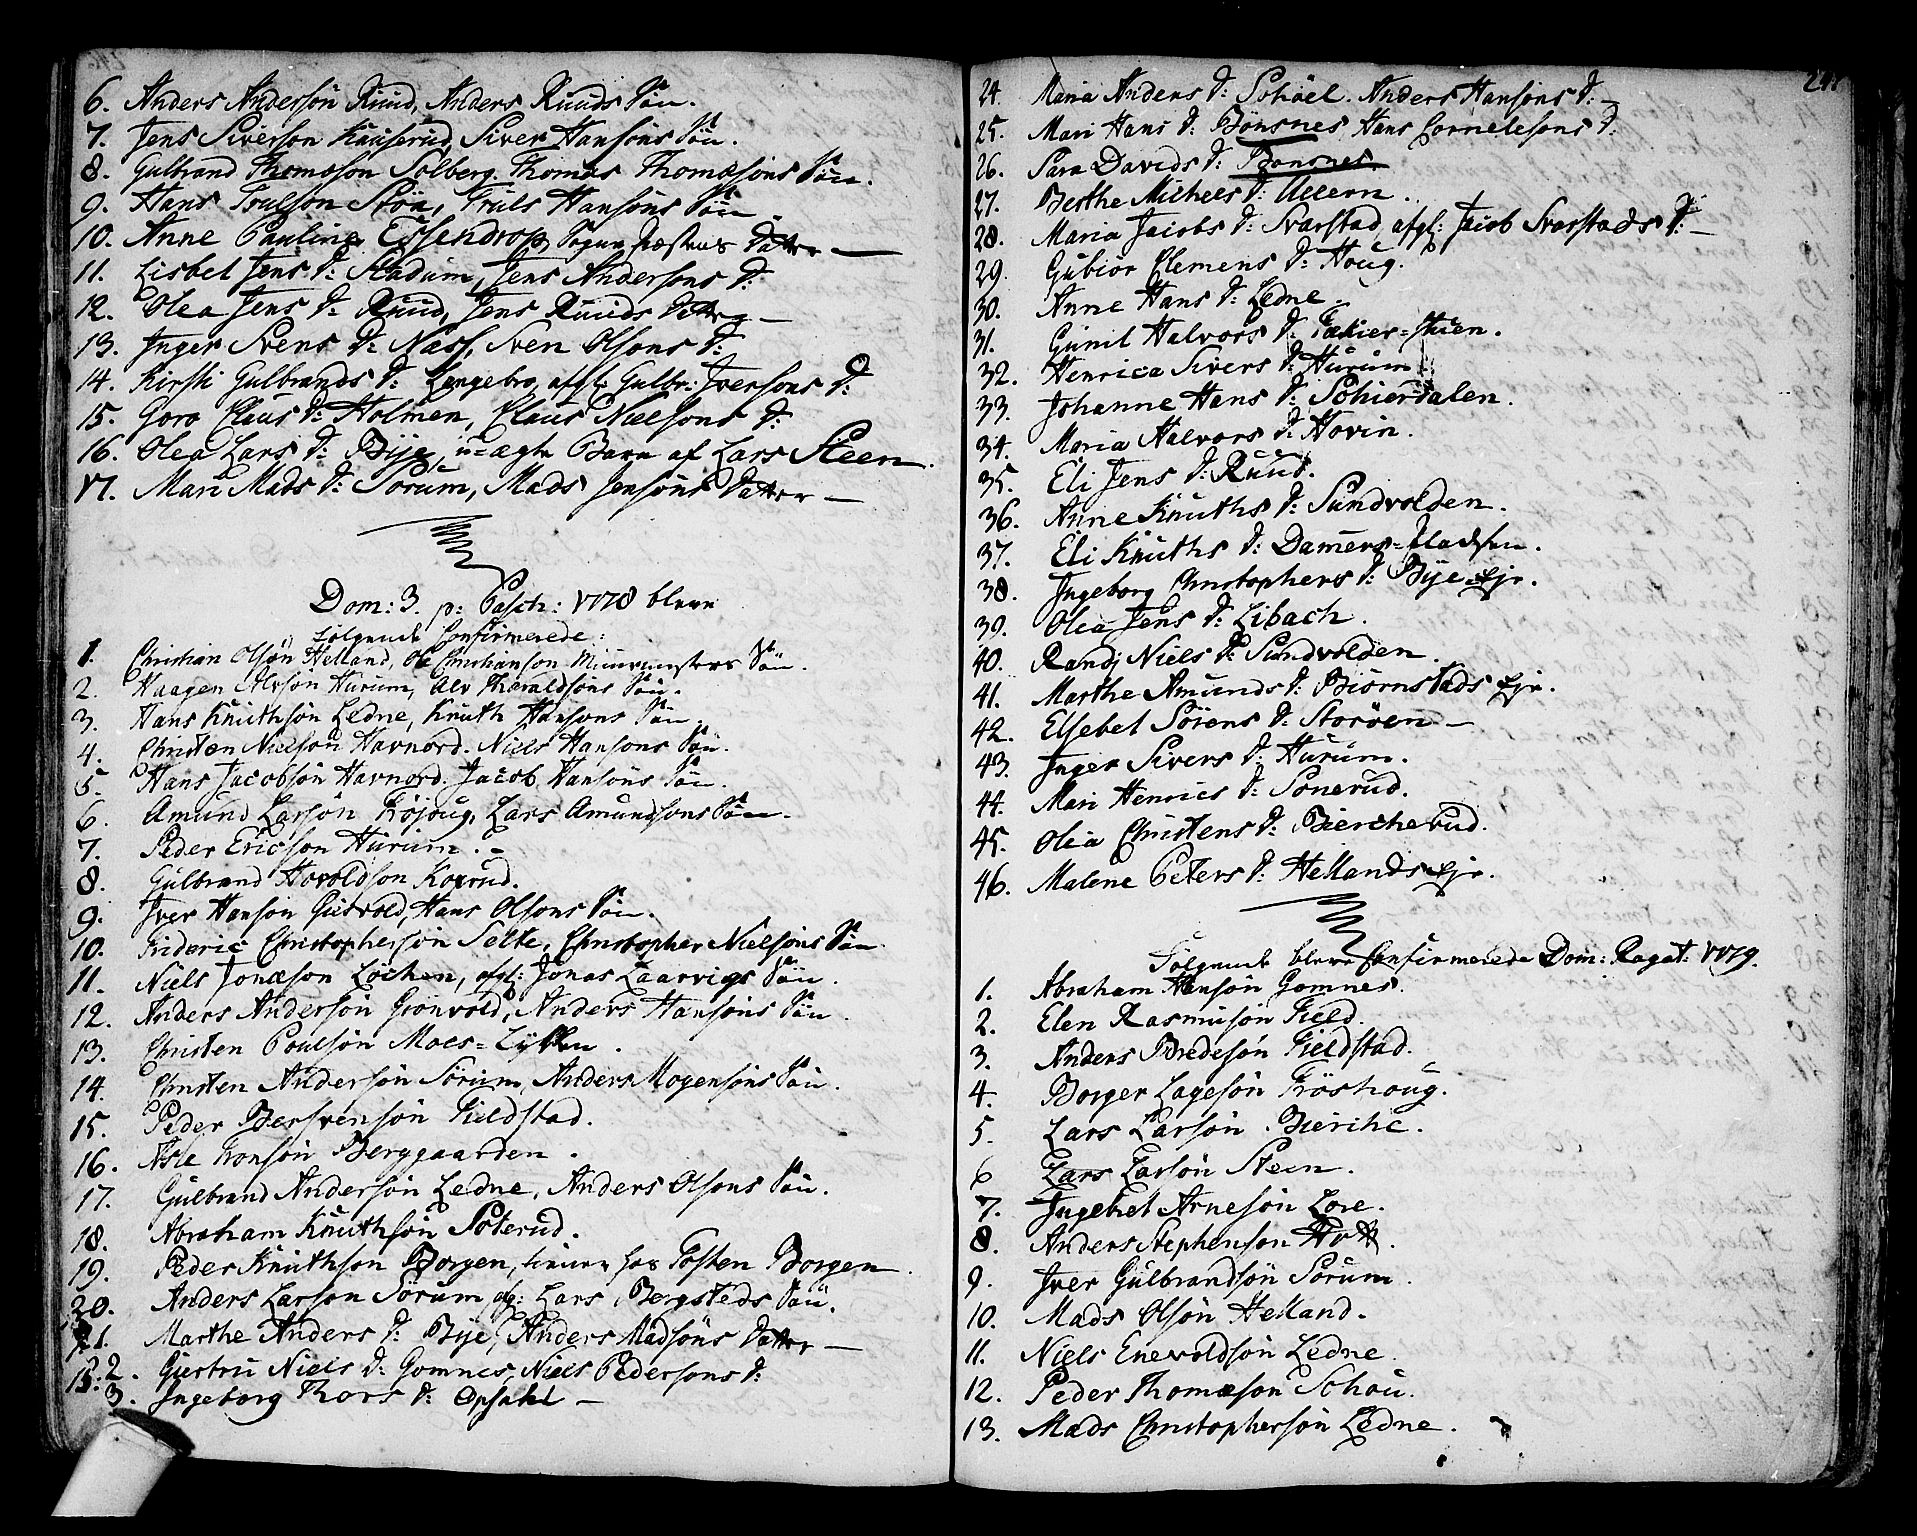 6. Anders Anderson Ruud, Anders Ruuds Søn.
7. Jens Siverson Kniserud, Siver Hansöns Sön.
8. Gulbrand Thomæson Solberg. Thomas Thomæsöns Sön.
9. Hans Trulson Stöa, Truls Hansöns Sön
10. Anne Pauline Essendrop, Sogne Præstens Datter —
11. Lisbet Jens D: Stadum, Jens Andersons D:
12. Olea Jens D: Ruud, Jens Ruuds Datter —
13. Inger Svens D: Næss, Sven Olsons D:
14. Kirsti Gulbrands D: Lengebro, afgl: Gulbr: Iversons D:
15. Goro Claus D: Holmen, Claus Nielsons D:
16. Olea Lars D: Bije, u-ægte Barn af Lars Steen.
17. Mari Mads D: Sörum, Mads Jensöns Datter —
Dom: 3. p: Pasch: 1778 bleve
følgende Confirmerede:
1. Christian Olsön Helland, Ole Christianson Muurmesters Sön.
2. Haagen Alvson Hurum, Alv Tharaldsöns Sön.
3. Hans Knuthsön Ledne, Knuth Hansons Sön.
4. Christen Nielson Havnord. Niels Hansons Sön.
5. Hans Jacobson Havnord. Jacob Hansöns Sön.
6. Amund Larsön Fröjoug, Lars Amundsons Sön.
7. Peder Ericson Hurum. —
8. Gulbrand Haroldson Koxrud.
9. Iver Hanson Gusvold, Hans Olsons Sön.
10. Frideric Christophersön Selte, Christopher Nielsöns Sön
11. Niels Jonæson Löchen, afgl: Jonas Laarvigs Sön.
12. Anders Andersön Grönvold, Anders Hansöns Sön.
13. Christen Poulsön Moes-Lykken.
14. Christen Andersön Sörum, Anders Mogensöns Sön.
15. Peder Bersvensön Fieldstad.
16. Asle Ironsön Berggaarden.
17. Gulbrand Andersön Ledne, Anders Olsons Sön.
18. Abraham Knuthsön Soterud.
19. Peder Knuthson Borgen, hos Tosten Borgen.
20. Anders Larson Sörum afg: Lars Bergsteds Sön.
21. Marthe Anders D: Bije, Anders Madsöns Datter —
22. Giertru Niels D: Gomnes, Niels Pedersons D:
23. Ingeborg Thors D: Opsahl —
24. Maria Anders D: Schöel. Anders Hansöns D: —
25. Mari Hans D: Bönsnes Hans Cornelesons D:
26. Sara Davids D: Bonsnes.
27. Berthe Michels D: Ullern.
28. Maria Jacobs D: Svarstad, afgl: Jacob Svarstads D: —
29. Gubiör Clemens D: Houg.
30. Anne Hans D: Ledne.
31. Gunil Halvors D: Fækier-Stuen.
32. Henrica Sivers D: Hurum
33. Johanne Hans D: Schierdalen.
34. Maria Halvors D: Hovin.
35. Eli Jens D: Ruud.
36. Anne Knuths D: Sundvolden.
37. Eli Knuths D: Damens-Pladsen.
38. Ingeborg Christophers D: Bije-Ejr.
39. Olea Jens D: Libach.
40. Randj Niels D: Sundvolden.
41. Marthe Amunds D: Biörnstads Ejr.
42. Elsebet Sörens D: Storöen —
43. Inger Sivers D: Hurum.
44. Mari Henrics D: Sonerud.
45. Olea Christens D: Biercherud.
46. Malene Peters D: Hellands Ejr.
Fölgende bleve Confirmerede Dom: Rogat: 1779.
1. Abraham Hansön Gomnes.
2. Elen Rasmuson Field.
3. Anders Bredesön Fieldstad.
4. Borger Lagesön Fröshoug.
5. Lars Larsön Bierche.
6 Lars Larsön Steen.
7. Ingebret Arnesön Lore.
8. Anders Stephenson
9. Iver Gulbrandsön Sorum.
10. Mads Olsön Helland.
11. Niels Enevoldsön Ledne.
12. Peder Thomæson Schou.
13. Mads Christopherson Ledne.